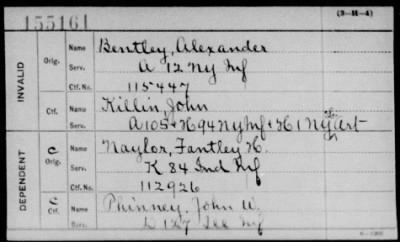 155161
(3-H-4)
INVALID
Orig. Name Bentley, Alexander
Serv. A 12 Ny Inf
Ctf. No. 115447
Ctf. Name Killin, John
Serv. A 105 + K 94 Ny Inf + K 1 Ny Lt Art
DEPENDENT
C Orig. Name Naylor, Fantley H.
Serv. K 84 Ind Inf
Ctf. No. 112926
C Ctf. Name Phinney, John W.
Serv. D 127 Ill Inf